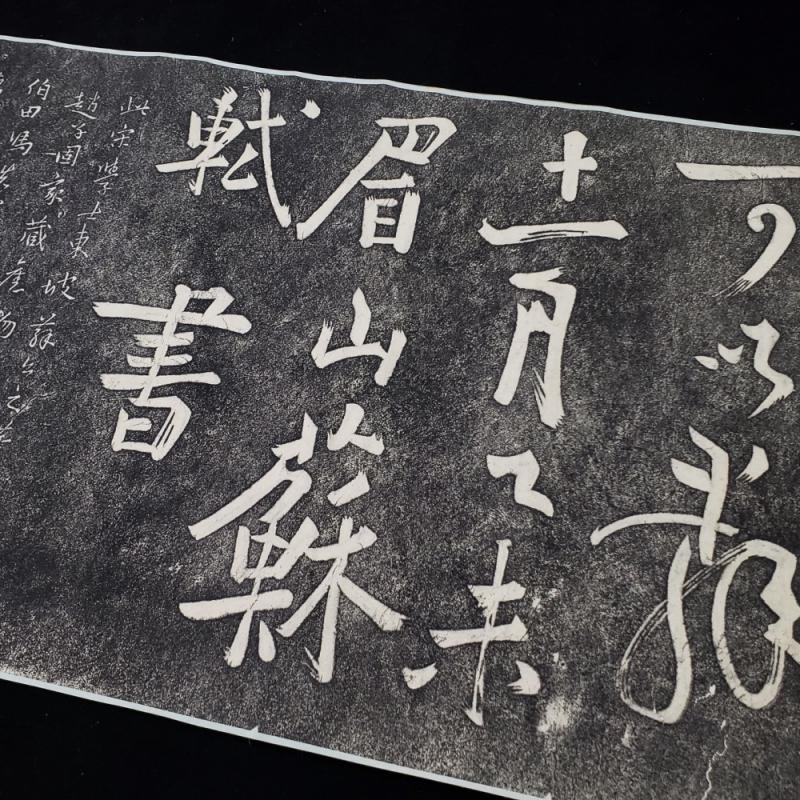 可以辭
十一月乙未
眉山蘇
軾書
此宋學士東坡蘇公之
趙子固家藏舊物
伯田馮